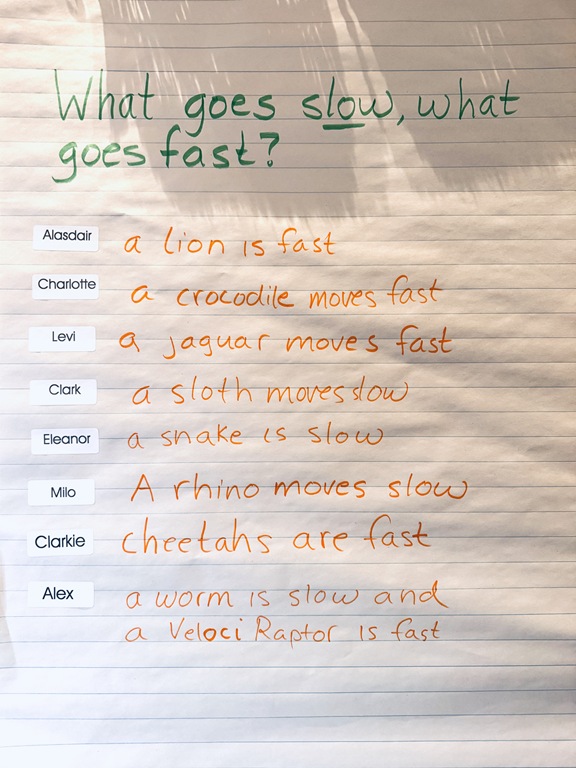 What goes slow, what
goes fast?
Alasdair a lion is fast
Charlotte a crocodile moves fast
Levi a jaguar moves fast
Clark a sloth moves slow
Eleanor a snake is slow
Milo A rhino moves slow
Clarkie cheetahs are fast
Alex a worm is slow and
a Veloci Raptor is fast